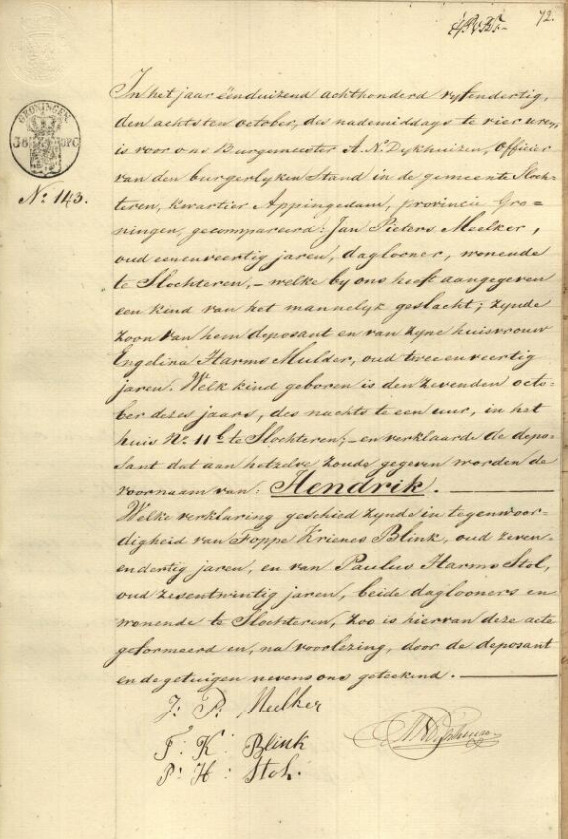 72.
GRONINGEN
No: 143.
In het jaar eenduizend achthonderd vyfendertig,
den achtsten october, des nademiddags te vier uren,
is voor ons Burgemeester A. N. Dykhuizen, Officier
van den burgerlyken Stand in de gemeente Sloch-
teren, kwartier Appingedam, provincie Gro-
ningen, gecompareerd: Jan Pieters Meelker,
oud eenenveertig jaren, daglooner, wonende
te Slochteren, – welke by ons heeft aangegeven
een kind van het mannelyk geslacht; zynde
zoon van hem deposant en van zyne huisvrouw
Engelina Harms Mulder, oud twee en veertig
jaren. Welk kind geboren is den zevenden octo-
ber dezes jaars, des nachts te een uur, in het
huis No 11b te Slochteren; – en verklaarde de depo-
sant dat aan hetzelve zoude gegeven worden de
voornaam van: Hendrik.
Welke verklaring geschied zynde in tegenwoor-
digheid van Foppe Krienes Blink, oud zeven-
endertig jaren, en van Paulus Harms Stol,
oud zesentwintig jaren, beide daglooners en
wonende te Slochteren, zoo is hiervan deze acte
geformeerd en, na voorlezing, door de deposant
en de getuigen nevens ons geteekend.
J: P: Meelker
F: K: Blink
P: H: Stol.